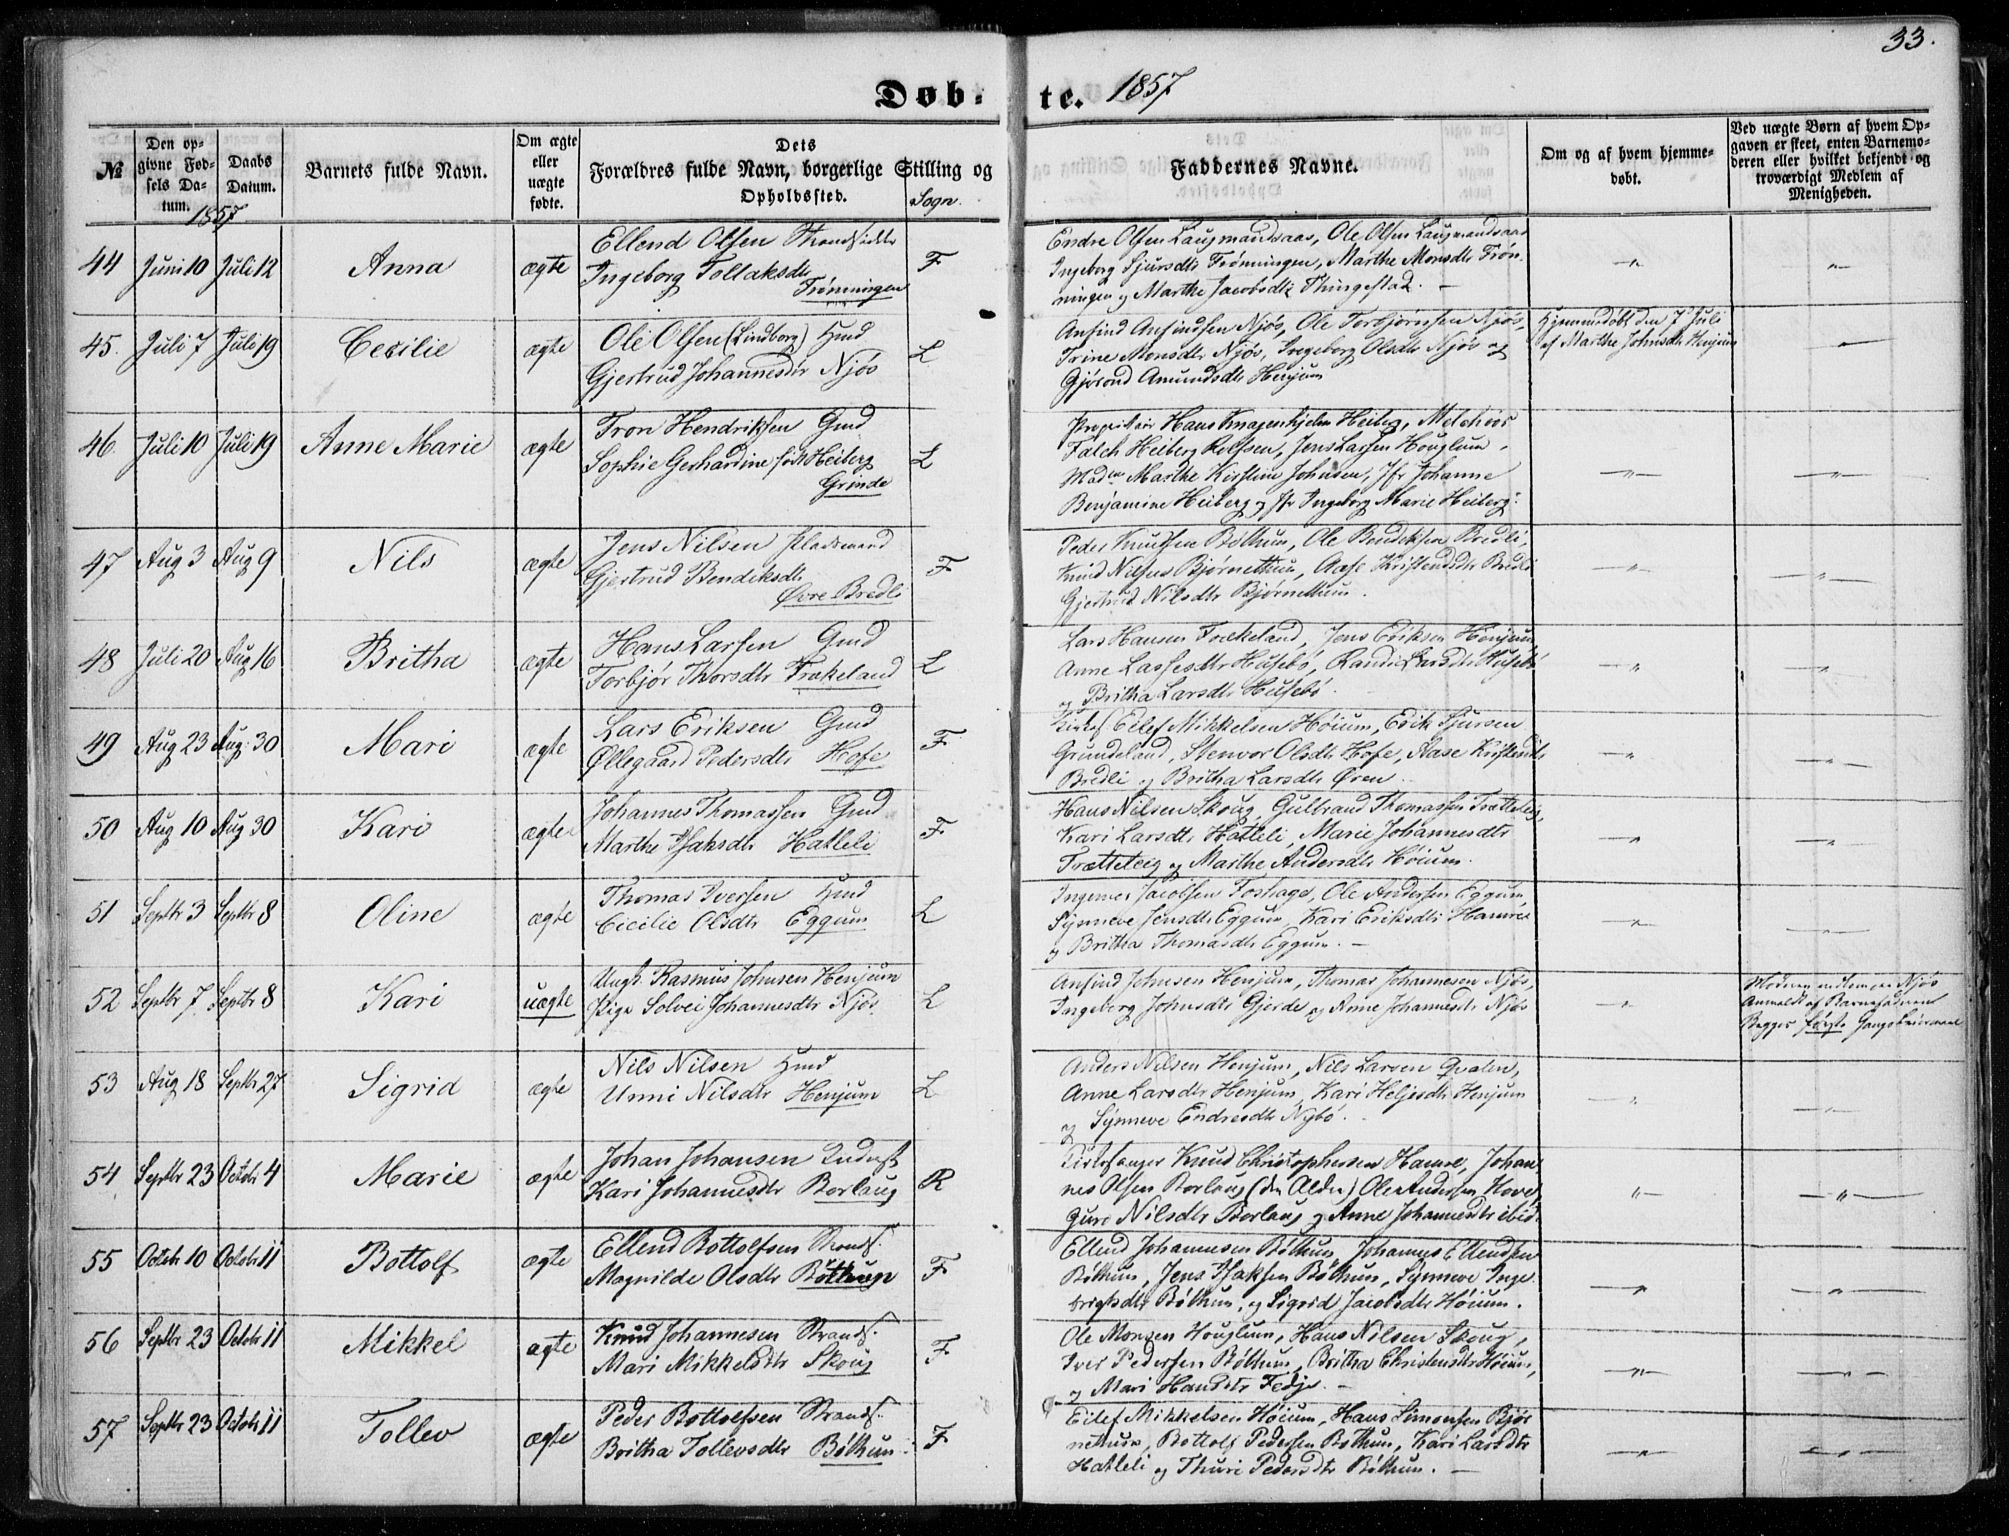 33.
Døb-te. 1857
№
Den opgivne Fødsels Datum.
Daabs Datum.
Barnets fulde Navn.
Om ægte eller uægte fødte.
Dets Forældres fulde Navn, borgerlige Stilling og Opholdssted.
Sogn.
Faddernes Navne.
Om og af hvem hjemmedøbt.
Ved uægte Børn af hvem Opgaven er skeet, enten Barnemoderen eller hvilket bekjendt og troværdigt Medlem af Menigheden.
1857
44 Juni 10 Juli 12 Anna ægte
Ellend Olsen Strandsidder
Ingeborg Tollaksdtr
Frønningen
F
Endre Olsen Laugmandsaas, Ole Olsen Laugmandsaas
Ingeborg Sjursdtr Frønningen, Marthe Monsdtr Frøn
ningen og Marthe Jacobsdtr Thingestad. –
45. Juli 7 Juli 19 Cecilie ægte
Ole Olsen (Lindborg) Hmd
Gjertrud Johannesdtr Njøs
L
Anfind Anfindsen Njøs, Ole Torbjørnsen Njøs,
Trine Monsdtr Njøs, Ingeborg Olsdtr Njøs og
Gjørond Amundsdtr Henjum
Hjemmedøbt den 7 Juli
af Marthe Johnsdtr Henjum
46. Juli 10 Juli 19 Anne Marie ægte
Tron Hendriksen Gmd
Sophie Gerhardine født Heiberg
Grinde
L
Proprietær Hans Knagenhjelm Heiberg, Melchior
Falch Heiberg Rolfsen, Jens Larsen Houglum,
Mad Marthe Kirstine Johnsen, Jfr Johanne
Benjamine Heiberg og Jfr Ingeborg Marie Heiberg.
47 Aug 3 Aug 9 Nils ægte
Jens Nilsen pladsmand
Gjertrud Bendiksdtr
Øvre Bredli
F
Peder Knutsen Bøthun, Ole Bendiksen Bredli,
Knud Nilsen Bjørnethun, Aase Kristensdtr Bredli
Gjertrud Nilsdtr Bjørnethun.
48 Juli 20 Aug 16 Britha ægte
Hans Larsen Gmd
Torbjør Thorsdtr Frækeland
L
Lars Hansen Frækeland, Jens Eriksen Henjum,
Anne Lassesdtr Husebø, Randi Larsdtr Husebø
og Britha Larsdtr Husebø.
49 Aug 23 Aug. 30 Mari ægte
Lars Eriksen Gmd
Øllegaard Pedersdtr Hofe
F
Eilef Mikkelsen Høium, Erik Sjursen
Grundeland, Stenvor Olsdtr Hofe, Aase Kristensdtr
Bredli og Britha Larsdtr Øren.
50 Aug 10 Aug 30 Kari ægte
Johannes Thomassen Gmd
Marthe Isaksdtr Hatleli
F
Hans Nilsen Skoug, Gulbrand Thomassen Trætteteig,
Kari Larsdtr Hatleli, Marie Johannesdtr
Trætteteig og Marthe Andersdtr Høium.
51 Septbr 3 Septbr 8 Oline ægte
Thomas Iversen Hmd
Cicilie Olsdtr Eggum
L
Ingemer Jacobsen Foshage, Ole Andersen Eggum
Synneve Jensdtr Eggum, Kari Eriksdtr Hamre
og Britha Thomasdtr Eggum. –
52 Septbr 7 Septbr 8 Kari uægte
Ungk. Rasmus Johnsen Henjum
Pige Solvei Johannesdtr Njøs
L
Anfind Johnsen Henjum, Thomas Johannesen Njøs,
Ingeborg Johnsdtr Gjerde og Anne Johannesdtr Njøs
Njøs
Anmeldt af Barnefaderen
Begges første Gangs Leiermaal
53 Aug 18 Septbr 27 Sigrid ægte
Nils Nilsen Hmd
Unni Nilsdtr Henjum
L
Anders Nilsen Henjum, Nils Larsen Qvalen,
Anne Larsdtr Henjum, Kari Heljesdtr Henjum
og Synneve Endresdtr Nybø.
54 Septbr 23 Octobr 4 Marie ægte
Johan Johansen Inderst
Kari Johannesdtr Borlaug
R
Kirkesanger Knud Christophersen Hamre, Johan
nes Olsen Borlaug (den Ældre) Ole Andersen Hove,
Guro Nilsdtr Borlaug og Anne Johannesdtr ibid.
55 Octobr 10 Octobr 11 Bottolf ægte
Ellend Bottolfsen Strands.
Magnilde Olsdtr Bøthun
F
Ellend Johannesen Bøthun, Johannes Ellendsen
Bøthun, Jens Isaksen Bøthun, Synneve Inge
brigtsdtr Bøthun, og Sigrid Jacobsdtr Høium.
56 Septbr 23 Octobr 11 Mikkel ægte
Knud Johannesen Strands.
Mari Mikkelsdtr Skoug
F
Ole Monsen Houglum, Hans Nilsen Skoug,
Iver Pedersen Bøthun, Britha Christensdtr Høium,
og Mari Hansdtr Fedje. –
57 Septbr 23 Octobr 11 Tollev ægte
Peder Bottolfsen Strands.
Britha Tollevsdtr Bøthun.
F
Eilef Mikkelsen Høium, Hans Simonsen Bjør
nethun, Bottolf Pedersen Bøthun, Kari Larsdtr
Hatleli og Thuri Pedersdtr Bøthun. –